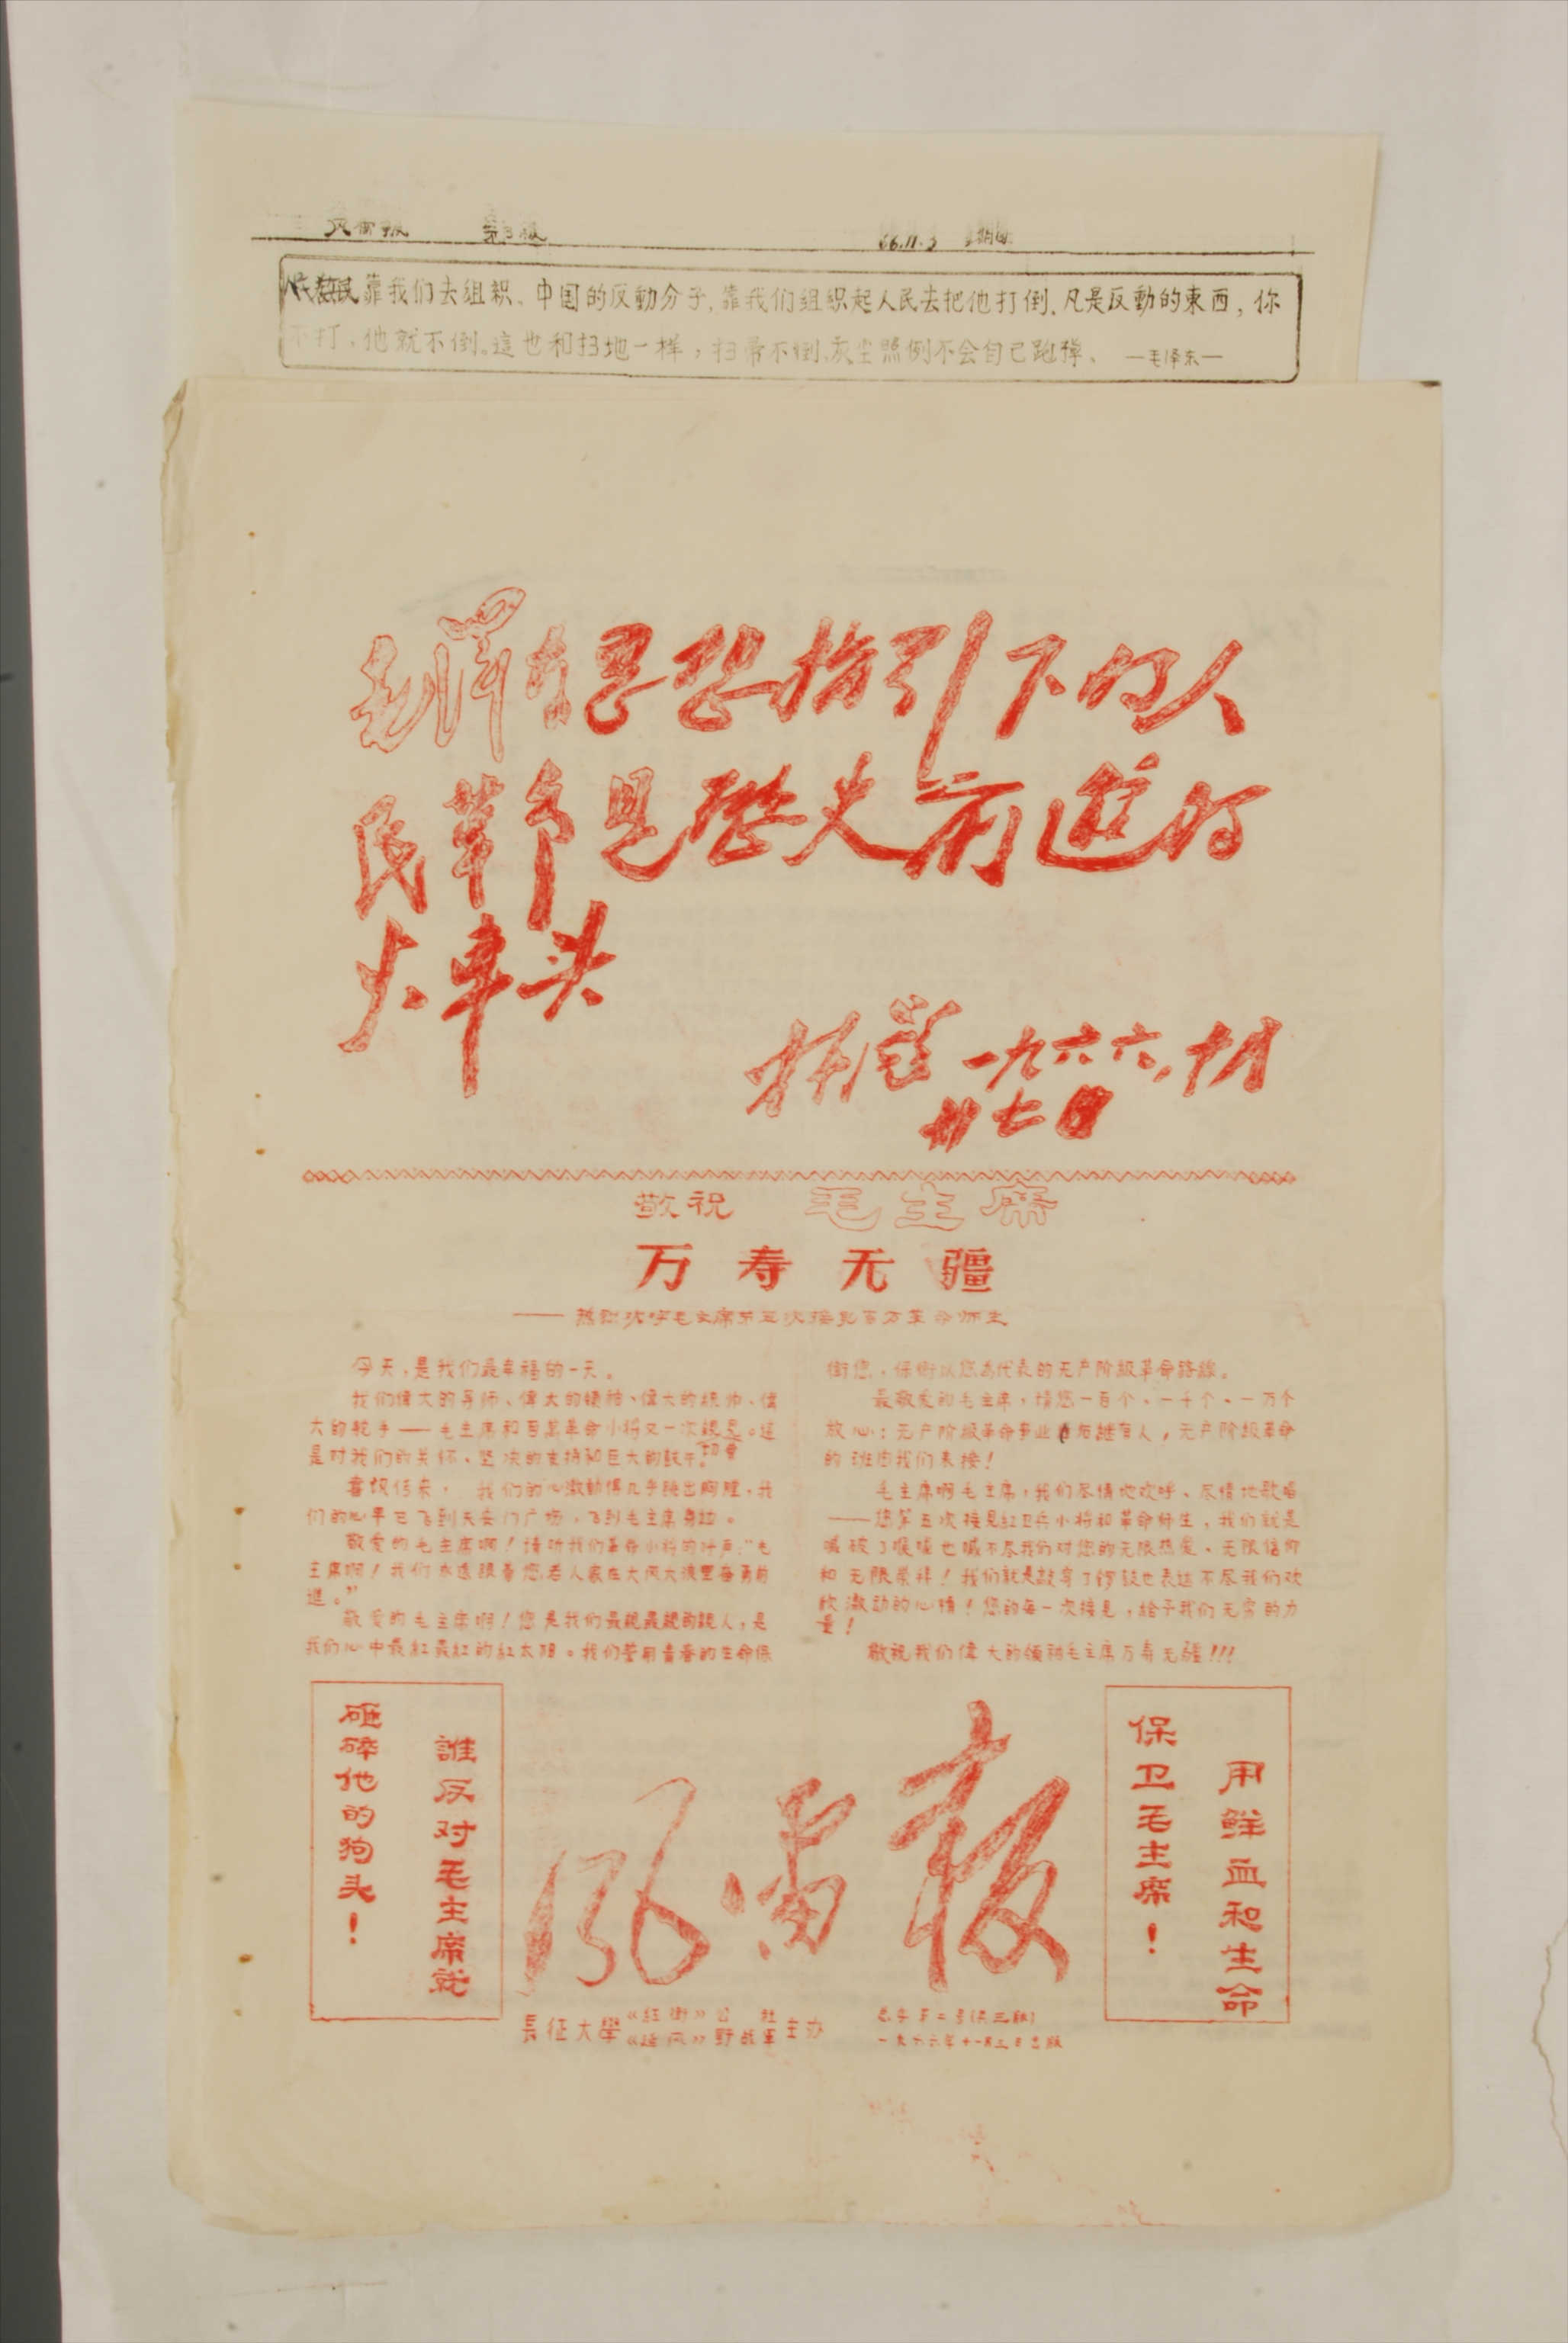 风雷报 第3版 66.11.3 星期四
靠我们去组织、中国的反動分子,靠我们组织起人民去把他打倒.凡是反動的東西,你
不打,他就不倒。這也和扫地一样,扫帚不到,灰尘照例不会自己跑掉、 —毛泽东—
毛泽东思想指引下的人
民革命是歷史前進的
火車头
林彪 一九六六,十月
廿七日
敬祝 毛主席
万寿无疆
——热烈欢呼毛主席第五次接見百万革命师生
今天,是我们最幸福的一天。
我们偉大的导师、偉大的領袖、偉大的統帅、偉
大的舵手——毛主席和百萬革命小将又一次親見。這
是对我们的关怀、坚决的支持和巨大的鼓午。
喜訊传来, 我们的心激動得几乎跳出胸膛,我
们的心早已飞到天安门广场,飞到毛主席身边。
敬爱的毛主席啊!请听我们革命小将的呼声:“毛
主席啊!我们永远跟着您老人家在大风大浪里奋勇前
進。”
敬爱的毛主席啊!您是我们最親最親的親人,是
我们心中最紅最紅的紅太阳。我们誓用青春的生命保
衛您,保衛以您為代表的无产阶級革命路線。
最敬爱的毛主席,请您一百个、一千个、一万个
放心:无产阶級革命事业后継有人,无产阶級革命
的班由我们来接!
毛主席啊毛主席,我们尽情地欢呼、尽情地歌唱
——您第五次接見紅卫兵小将和革命师生,我们就是
喊破了喉嚨也喊不尽我们对您的无限热爱、无限信仰
和无限崇拜!我们就是敲穿了鑼鼓也表达不尽我们欢
欣激动的心情!您的每一次接見,給予我们无穷的力
量!
敬祝我们偉大的領袖毛主席万寿无疆!!!
誰反对毛主席就
砸碎他的狗头!
风雷报
用鲜血和生命
保卫毛主席!
長征大學《紅衛》公社
《延风》野战軍 主办
总字第二号(共三版)
一九六六年十一月三日出版